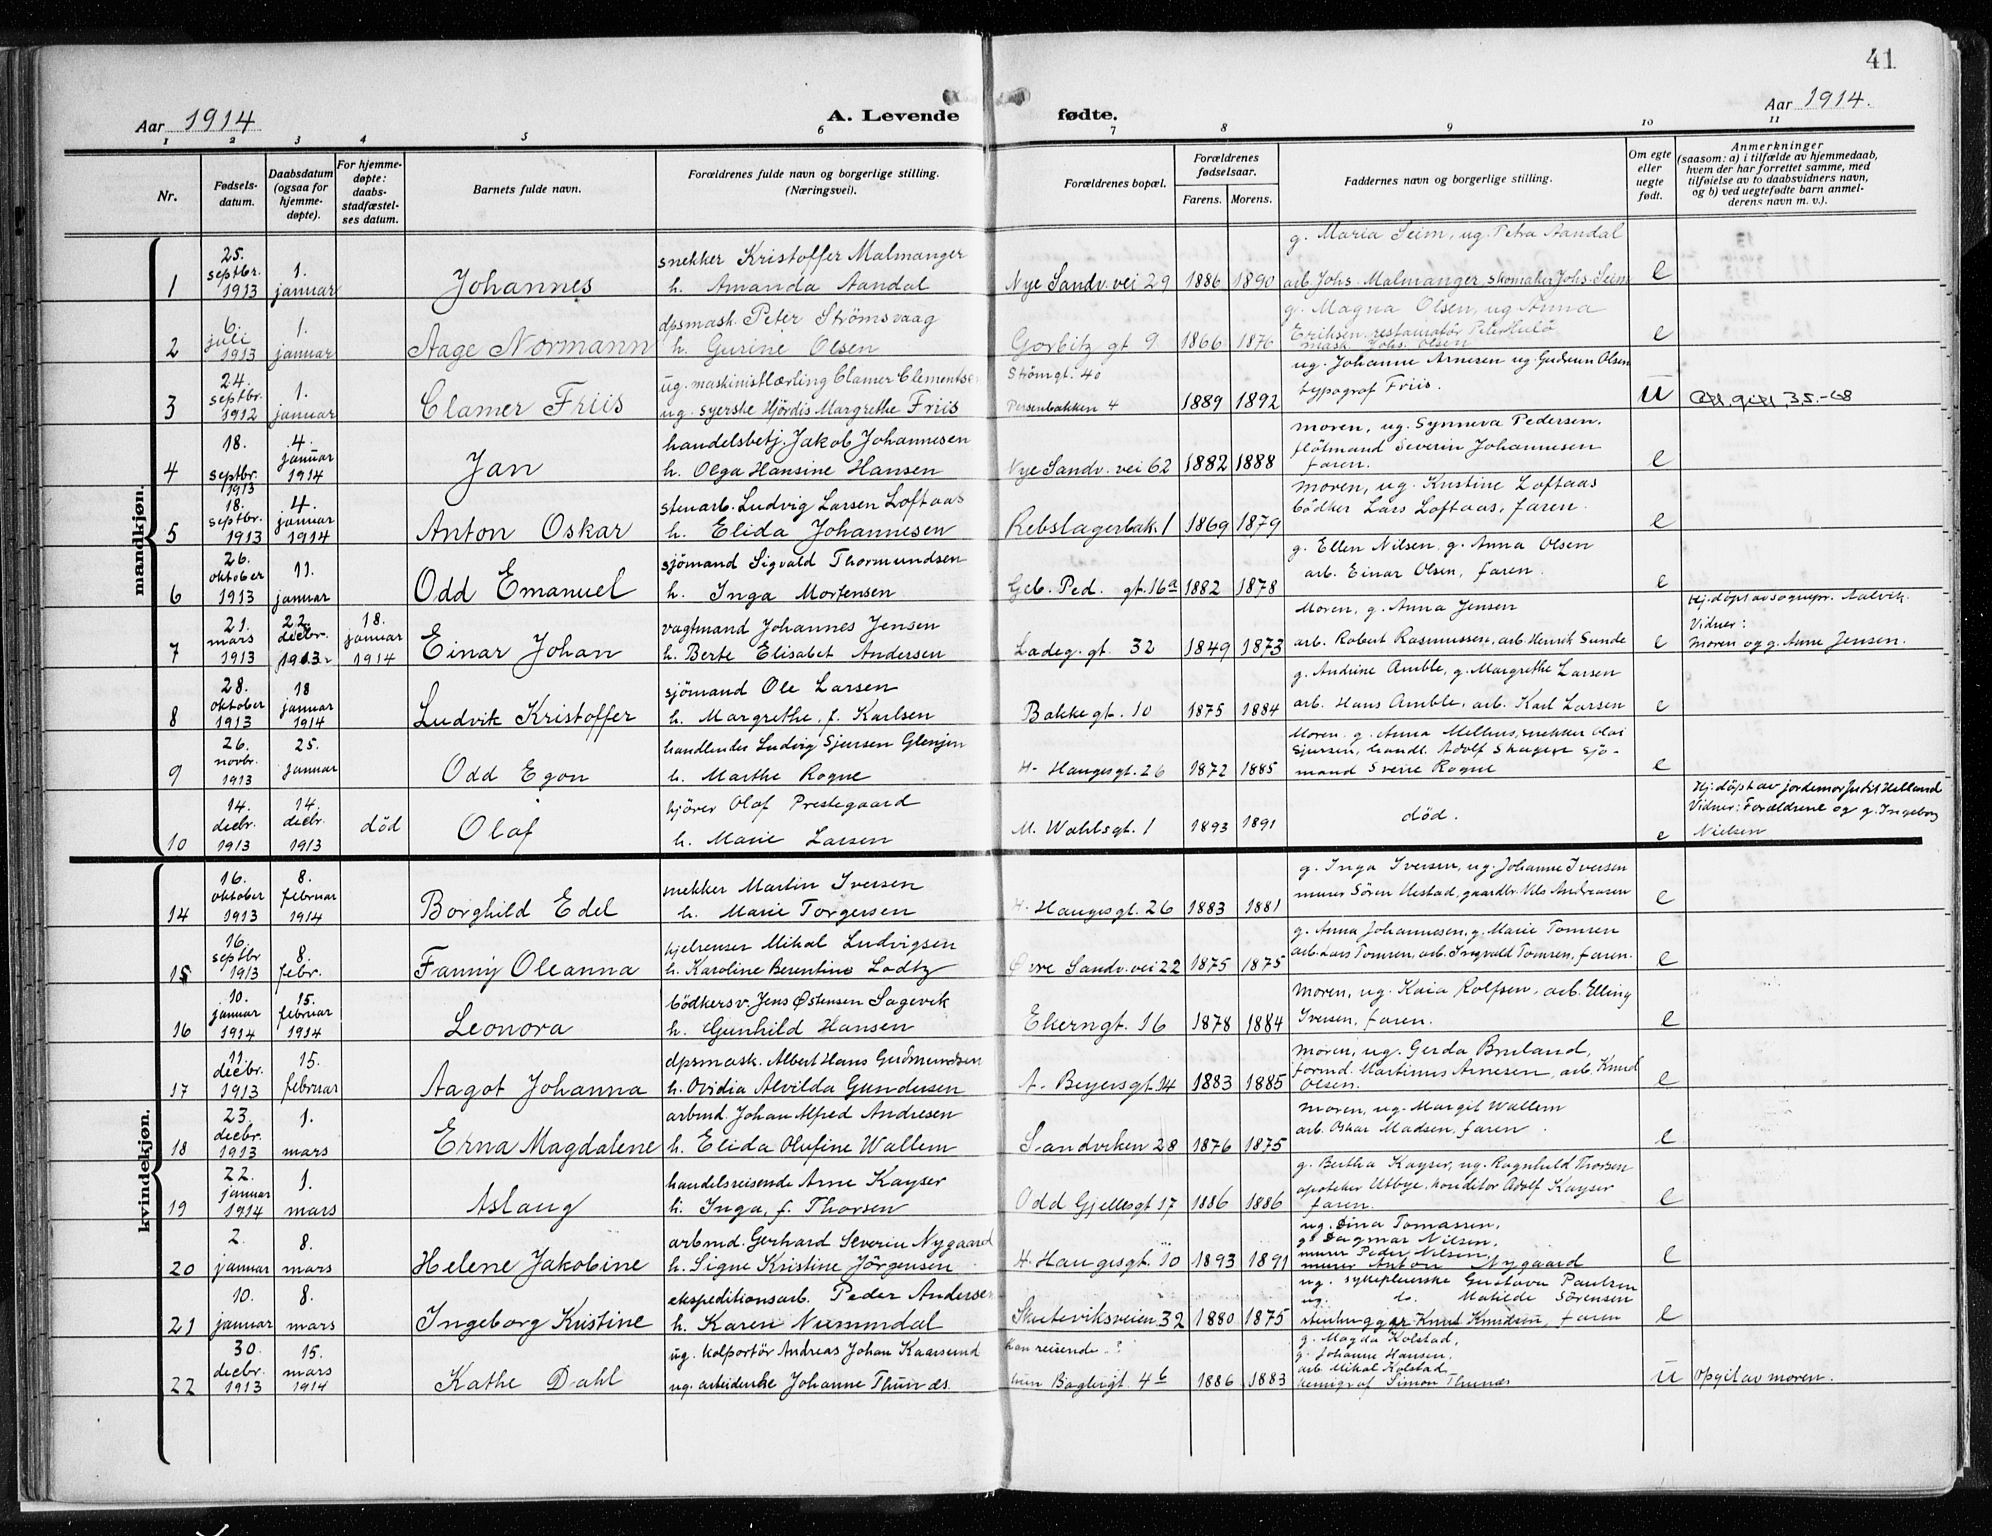 41
Aar 1914
A. Levende fødte.
Aar 1914.
1 2 3 4 5 6 7 8 9 10 11
Nr.
Fødsels-
datum.
Daabsdatum
(ogsaa for
hjemme-
døpte).
For hjemme-
døpte:
daabs-
stadfæstel-
ses datum.
Barnets fulde navn.
Forældrenes fulde navn og borgerlige stilling.
(Næringsvei).
Forældrenes bopæl.
Forældrenes
fødselsaar.
Farens. Morens.
Faddernes navn og borgerlige stilling.
Om egte
eller
uegte
født.
Anmerkninger
(saasom: a) i tilfælde av hjemmedaab,
hvem der har forrettet samme, med
tilføielse av to daabsvidners navn,
og b) ved uegtefødte barn anmel-
derens navn m. v.).
mandkjøn.
1
25.
septbr.
1913
1.
januar
Johannes
snekker Kristoffer Malmanger
h. Amanda Aandal
Nye Sandv. vei 29
1886 1890
g. Maria Seim, ug. Petra Aandal
arb. Johs. Malmanger skomaker Johs. Seim
e
2
6.
juli
1913
1.
januar
Aage Normann
dpsmask. Peter Strömsvaag
h. Gurine Olsen
Gorbitz gt 9
1866 1876
g. Magna Olsen, ug Anna
Eriksen, restauratör Peter
mask. Johs. Olsen
e
3
24.
septbr.
1912
1.
januar
Clamer Friis
ug. maskinistlærling Clamer Clementsen
ug. syerske Hjördis Margrethe Friis
Strömgt. 40
Persenbakken 4
1889 1892
ug. Johanne Arnesen ug. Gudrun Olsen
typograf Friis.
u
4
18.
septbr.
1913
4.
januar
1914
Jan
handelsbetj. Jakob Johannesen
h. Olga Hansine Hansen
Nye Sandv. vei 62
1882 1888
moren, ug. Synneva Pedersen,
flötmand Severin Johannesen
faren.
e
5
18.
septbr.
1913
4.
januar
1914
Anton Oskar
stenarb. Ludvig Larsen Loftaas
h. Elida Johannesen
Rebslagerbak. 1
1869 1879
moren, ug. Kristine Loftaas
bödker Lars Loftaas, faren.
e
6
26.
oktober
1913
11.
januar
Odd Emanuel
sjömand Sigvald Thormundsen
h. Inga Mortensen
Geb. Ped. gt. 16a
1882 1878
g. Ellen Nilsen, g. Anna Olsen
arb. Einar Olsen, faren.
e
7
21.
mars
1913
22.
decbr.
1913
18.
januar
1914
Einar Johan
vagtmand Johannes Jensen
h. Berte Elisabet Andersen
Ladeg. gt. 32
1849 1873
Moren, g. Anna Jensen
arb. Robert Rasmussen, arb. Henrik Sunde
e
Hj. döpt av sognepr. Aalvik.
Vidner:
moren og g. Anne Jensen.
8
28.
oktober
1913
18
januar
1914
Ludvik Kristoffer
sjömand Ole Larsen
h. Margrethe, f. Karlsen
Bakkegt. 10
1875 1884
g. Andrine Amble, g. Margrethe Larsen
arb. Hans Amble, arb. Karl Larsen
e
9
26.
novbr.
1913
25.
januar
Odd Egon
handlende Ludvig Sjursen Glenjen
h. Marthe Rogne
H. Haugesgt. 26
1872 1885
Moren. g. Anna Melhus, snekker Olai
Sjursen, handl. Adolf Skagen sjö-
mand Sverre Rogne
e
10
14.
decbr.
1913
14.
decbr.
1913
död
Olaf
kjörer Olaf Prestegaard
h. Marie Larsen
M. Wahlsgt. 1
1893 1891
död.
e
Hj. döpt av jordemor Helland
Vidner: Forældrene og g. Ingeborg
Nielsen
kvindekjøn.
14
16.
oktober
1913
8.
februar
1914
Borghild Edel
snekker Martin Iversen
h. Marie Torgersen
H. Haugesgt. 26
1883 1881
g. Inga Iversen, ug. Johanne Iversen
murer Sören Uestad, gaardbr. Nils Andreasen
e
15
16.
septbr
1913
8.
febr.
Fanny Oleanna
kjelrenser Mikal Ludvigsen
h. Karoline Berentine Lodtz
Øvre Sandv. vei 22
1875 1875
g. Anna Johannesen, g. Marie Tomren
arb. Lars Tomren, arb. Ingvald Tomren, faren.
e
16
10.
januar
1914
15.
februar
1914
Leonora
bödkersv. Jens Østensen Sagevik
h. Gunhild Hansen
Ekerngt. 16
1878 1884
Moren, ug. Kaia Rolfsen, arb. Elling
Iversen, faren.
e
17
11.
decbr.
1913
15.
februar
Aagot Johanna
dpsmask. Albert Hans Gudmundsen
h. Ovidia Alvilda Gundersen
A. Beyersgt. 14
1883 1885
Moren, ug. Gerda Bruland,
formd. Martinus Arnesen, arb. Knud
Olsen.
e
18
23.
decbr.
1913
1.
mars
Erna Magdalene
arbmd Johan Alfred Andresen
h. Elida Olufine Wallem
Sandviken 28
1876 1875
moren, ug. Margit Wallem
arb. Oskar Madsen, faren.
e
19
22.
januar
1914
1.
mars
Aslaug
handelsreisende Arne Kayser
h. Inga, f. Thorsen
Odd Gjellesgt 17
1886 1886
g. Bertha Kayser, ug. Ragnhild Thorsen
apoteker Utbye, konditor Adolf Kayser
faren.
e
20
2.
januar
8.
mars
Helene Jakobine
arbmd. Gerhard Severin Nygaard
h. Signe Kristine Jörgensen
H. Haugesgt. 10
1893 1891
ug. Dina Tomassen,
g. Dagmar Nilsen,
murer Peder Nilsen,
murer Anton Nygaard
e
21
10.
januar
8.
mars
Ingeborg Kristine
ekspeditionsarb. Peder Andersen
h. Karen Nummdal
Skuteviksveien 32
1880 1875
ug. sykepleierske Gustava Paulsen
ug. do. Matilde Sörensen
stenhugger Knut Knudsen, faren
e
22
30
decbr.
1913
15.
mars
1914
Kathe Dahl
ug. kolportör Andreas Johan Kaarsund
ug. arbeiderske Johanne Thunæs
han reisende.?
hun Baglergt. 4b
1886 1883
g. Magda Kolstad,
g. Johanne Hansen,
arb. Mikal Kolstad
kemigraf Simon Thunæs
u
Opgit av moren.